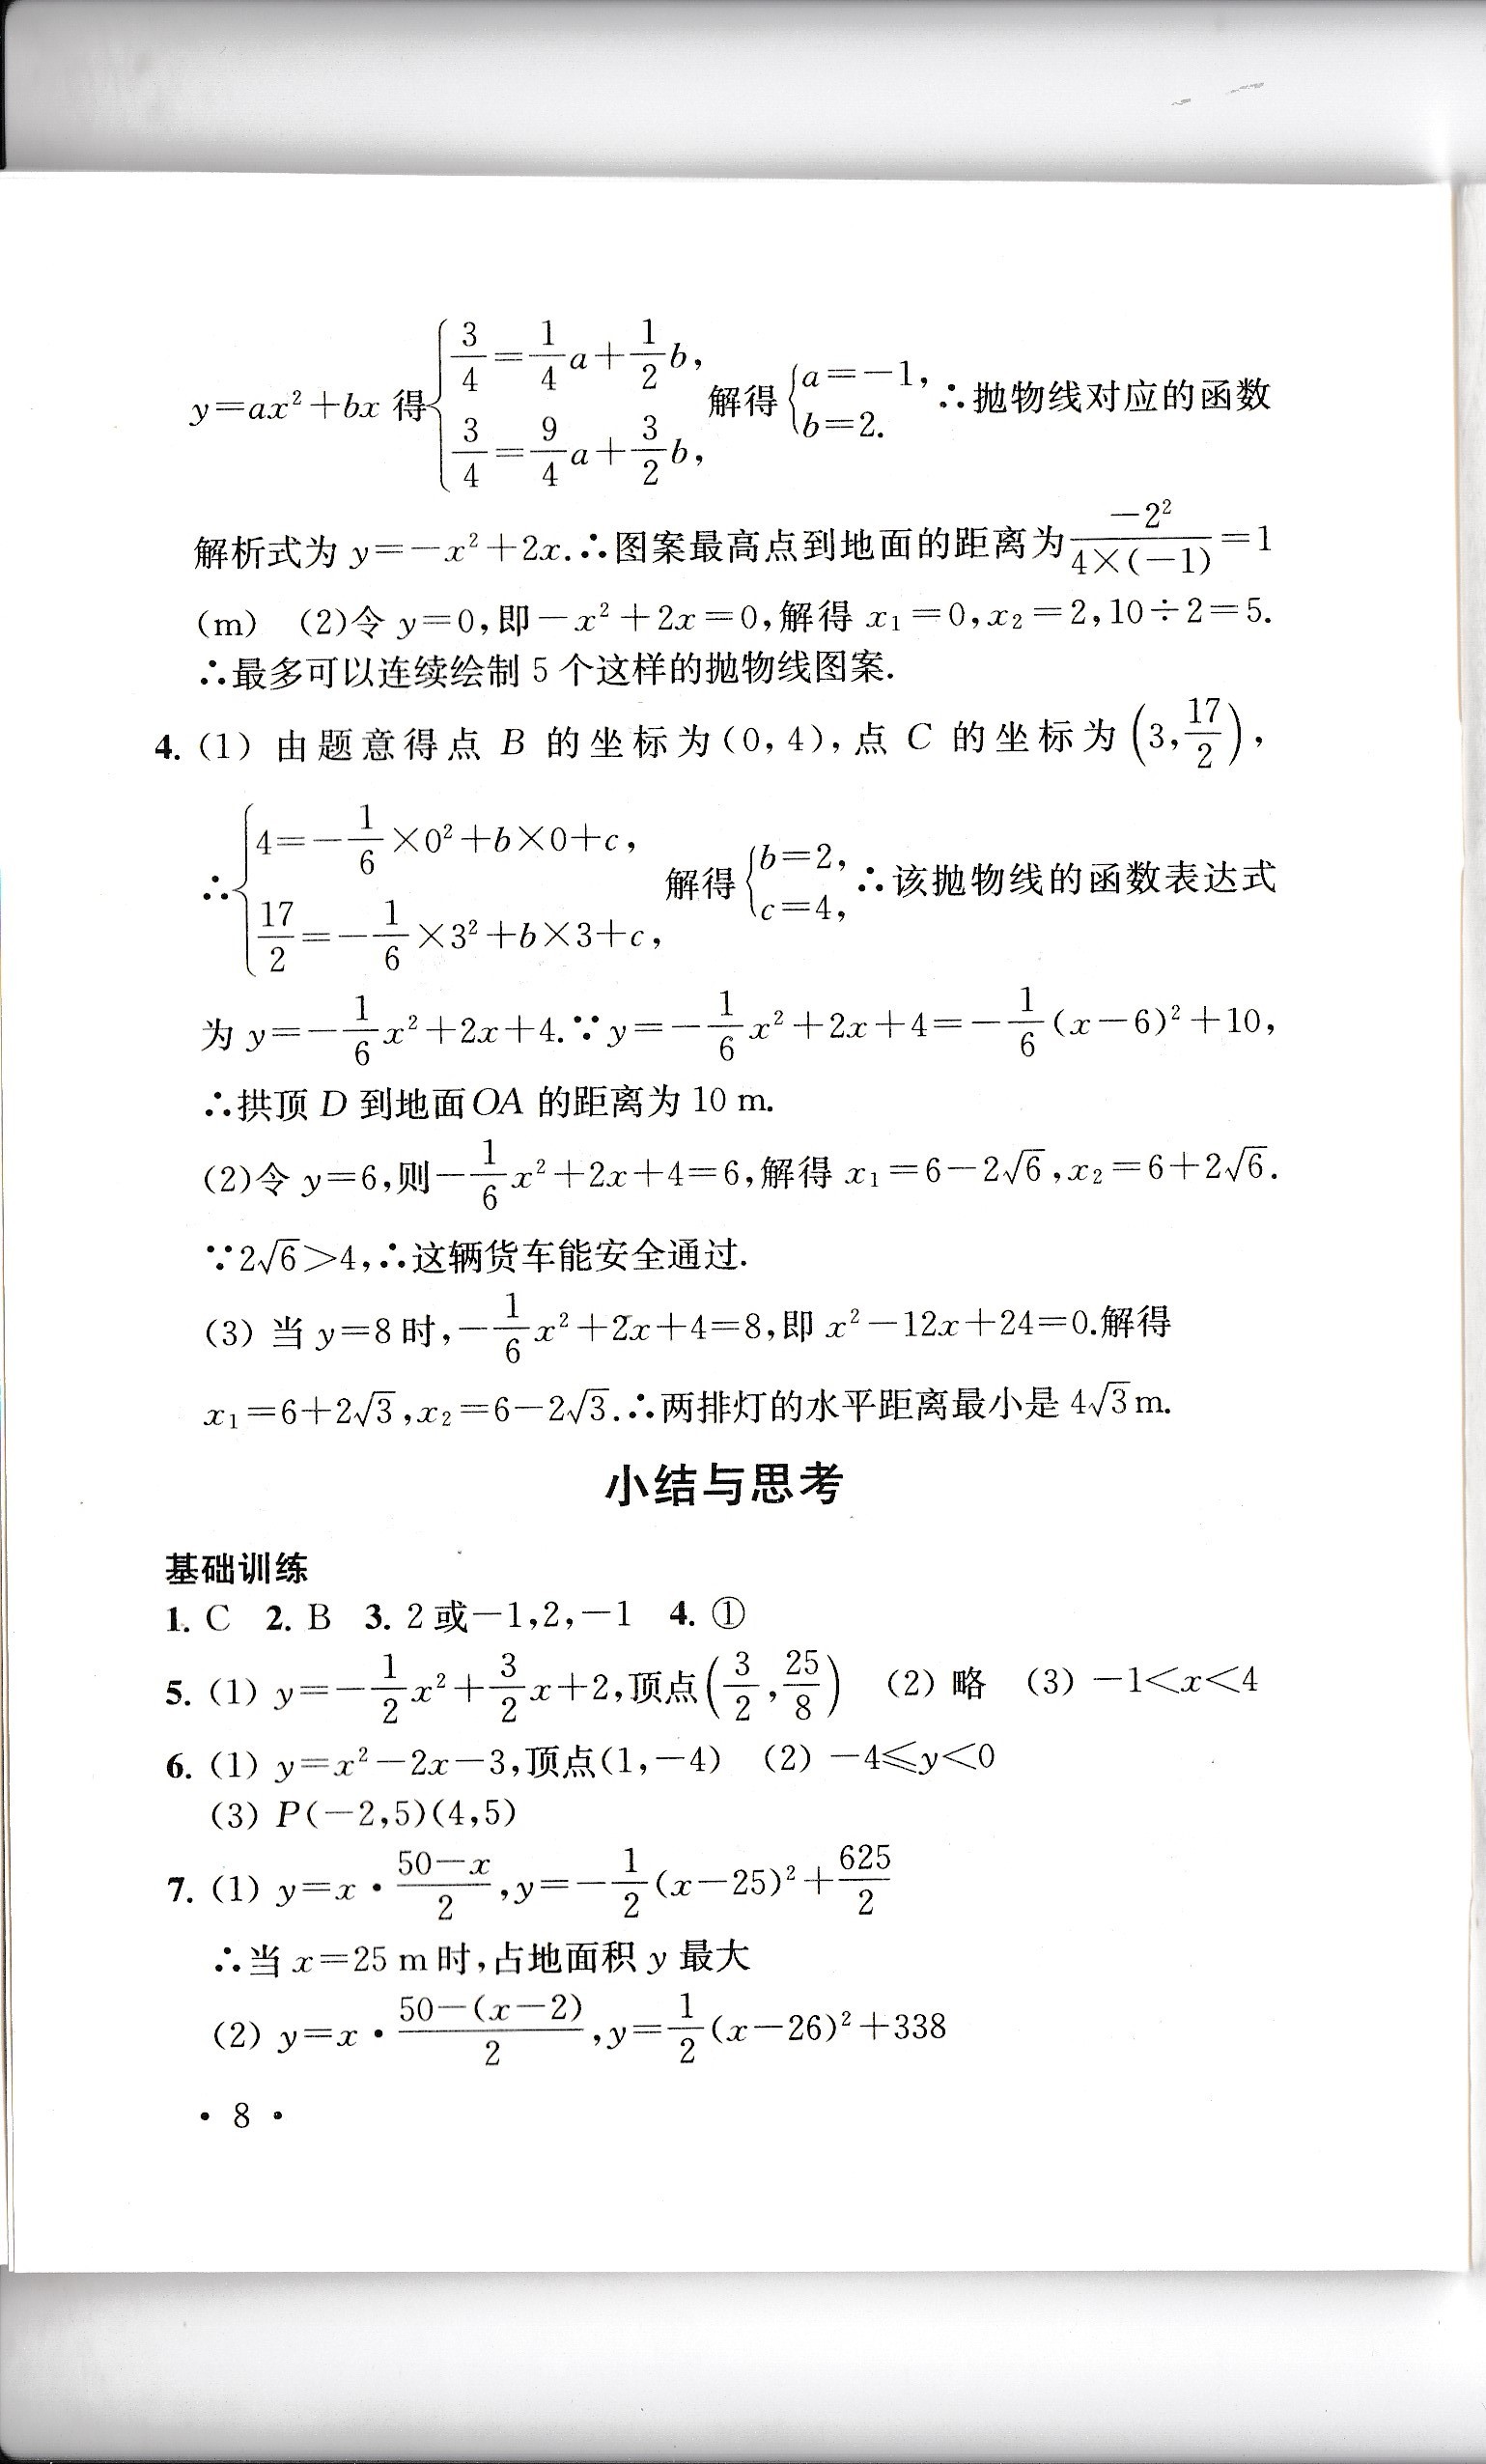 y=ax²+bx 得{3/4=1/4a+1/2b, 3/4=9/4a+3/2b, 解得{a=-1, b=2. ∴抛物线对应的函数
解析式为 y=-x²+2x.∴图案最高点到地面的距离为 -2²/4×(-1)=1
(m) (2)令 y=0,即-x²+2x=0,解得 x₁=0,x₂=2,10÷2=5.
∴最多可以连续绘制 5 个这样的抛物线图案.
4. (1) 由题意得点 B 的坐标为(0,4),点 C 的坐标为(3,17/2),
∴{4=-1/6×0²+b×0+c, 17/2=-1/6×3²+b×3+c, 解得{b=2, c=4, ∴该抛物线的函数表达式
为 y=-1/6x²+2x+4.∵y=-1/6x²+2x+4=-1/6(x-6)²+10,
∴拱顶 D 到地面OA 的距离为 10 m.
(2)令 y=6,则-1/6x²+2x+4=6,解得 x₁=6-2√6,x₂=6+2√6.
∵2√6>4,∴这辆货车能安全通过.
(3) 当 y=8时,-1/6x²+2x+4=8,即 x²-12x+24=0.解得
x₁=6+2√3,x₂=6-2√3.∴两排灯的水平距离最小是 4√3m.
小结与思考
基础训练
1. C 2. B 3. 2或-1,2,-1 4. ①
5. (1) y=-1/2x²+3/2x+2,顶点(3/2,25/8) (2) 略 (3) -1<x<4
6. (1) y=x²-2x-3,顶点(1,-4) (2) -4≤y<0
(3) P(-2,5)(4,5)
7. (1) y=x·50-x/2,y=-1/2(x-25)²+625/2
∴当 x=25 m时,占地面积 y 最大
(2) y=x·50-(x-2)/2,y=1/2(x-26)²+338
· 8 ·